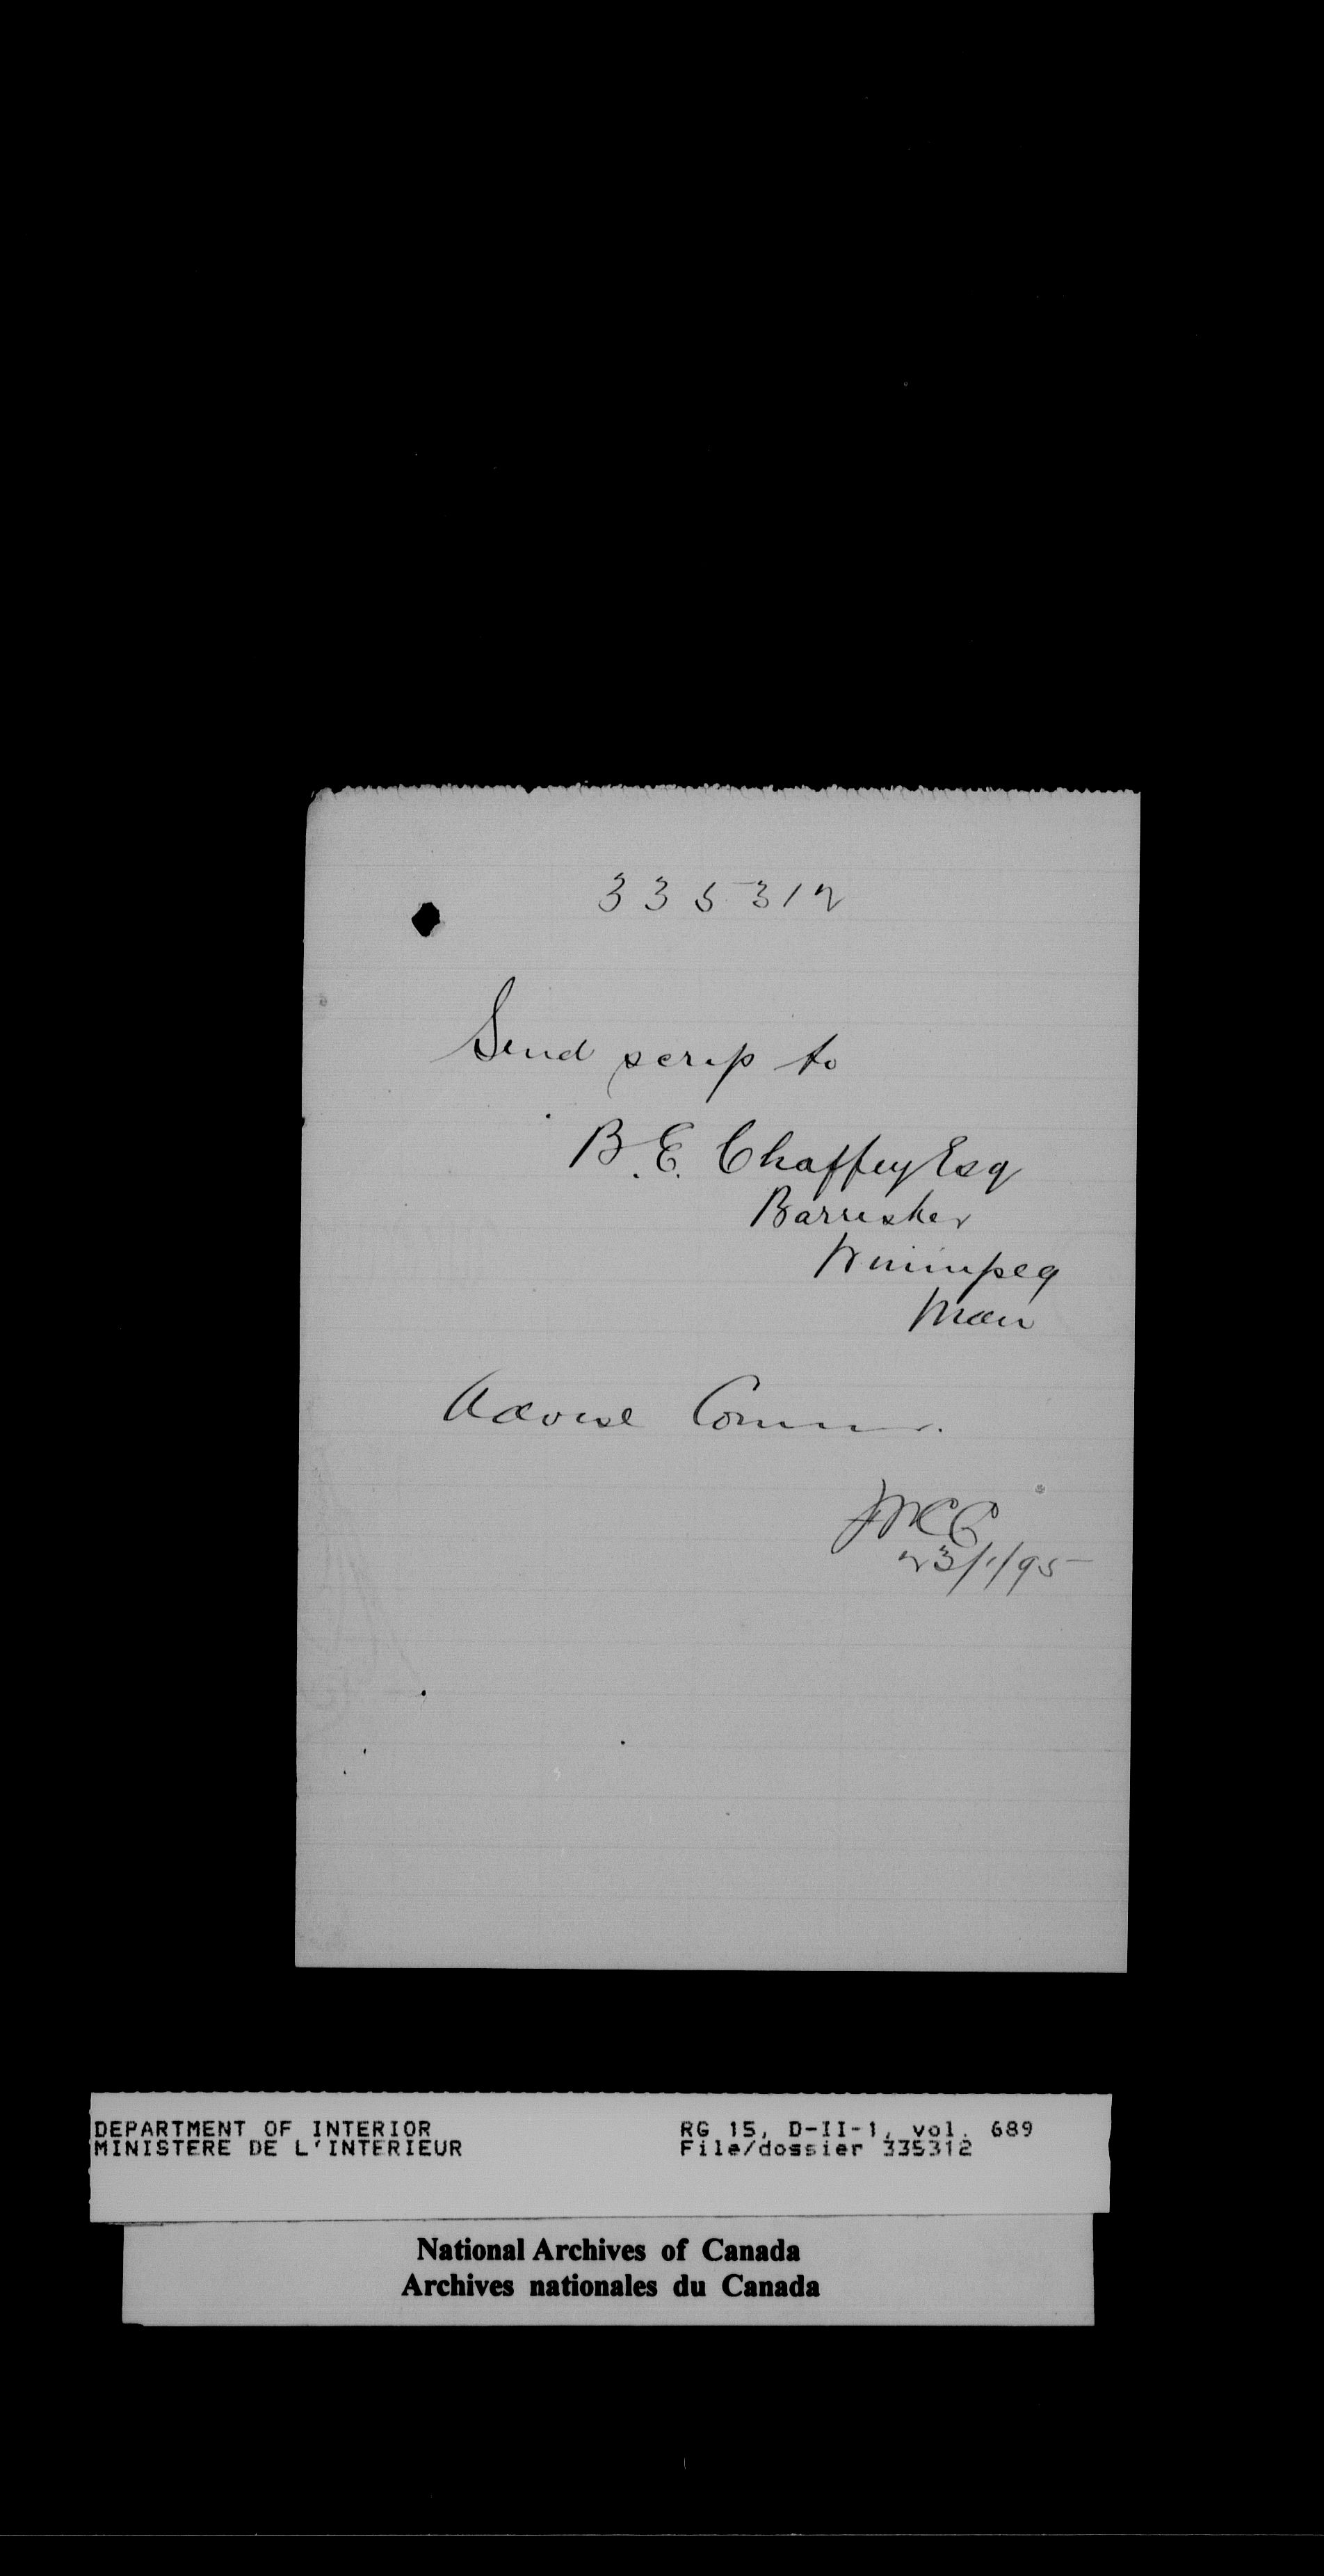 335312
Send scrip to
B.E. Chaffey Esq
Barrister
Winnipeg
Man
Advise Commr.
23/1/95
DEPARTMENT OF INTERIOR
MINISTERE DE L'INTERIEUR
RG 15, D-II-1, vol. 689
File/dossier 335312
National Archives of Canada
Archives nationales du Canada